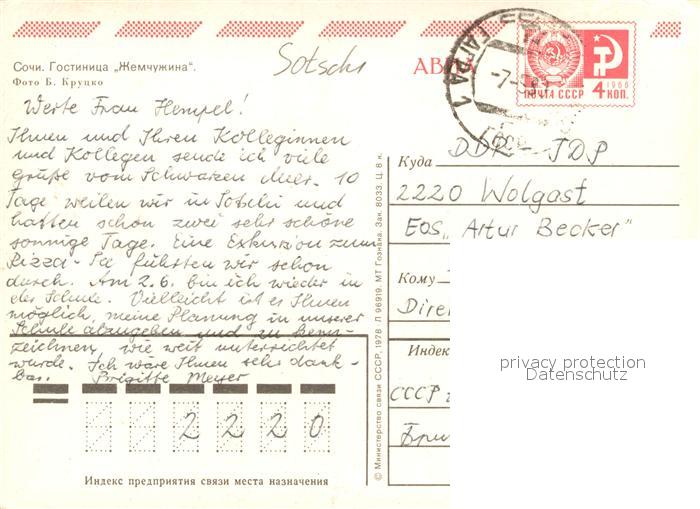 Сочи. Гостиница „Жемчужина“.
Фото Б. Круцко
Sotschi
АВИА
ГАГРА 1
ПОЧТА СССР
1966
4 КОП.
Werte Frau Hempel!
Ihnen und Ihren Kolleginnen
und Kollegen sende ich viele
Grüße vom Schwarzen Meer. 10
Tage weilen wir in Sotschi und
hatten schon zwei sehr schöne
sonnige Tage. Eine Exkursion zum
Rizza-See führten wir schon
durch. Am 2.6. bin ich wieder in
der Schule. Vielleicht ist es Ihnen
möglich, meine Planung in unserer
Schule abzugeben und zu kenn-
zeichnen, wie weit unterrichtet
wurde. Ich wäre Ihnen sehr dank-
bar. Brigitte Meyer
2220
Индекс предприятия связи места назначения
© Министерство связи СССР, 1978. Л 96919. МТ Гознака. Зак. 8033. Ц. 8 к.
Куда DDR
2220 Wolgast
EOS „Artur Becker“
Кому
Direk
Индек
СССР
Бри
privacy protection
Datenschutz